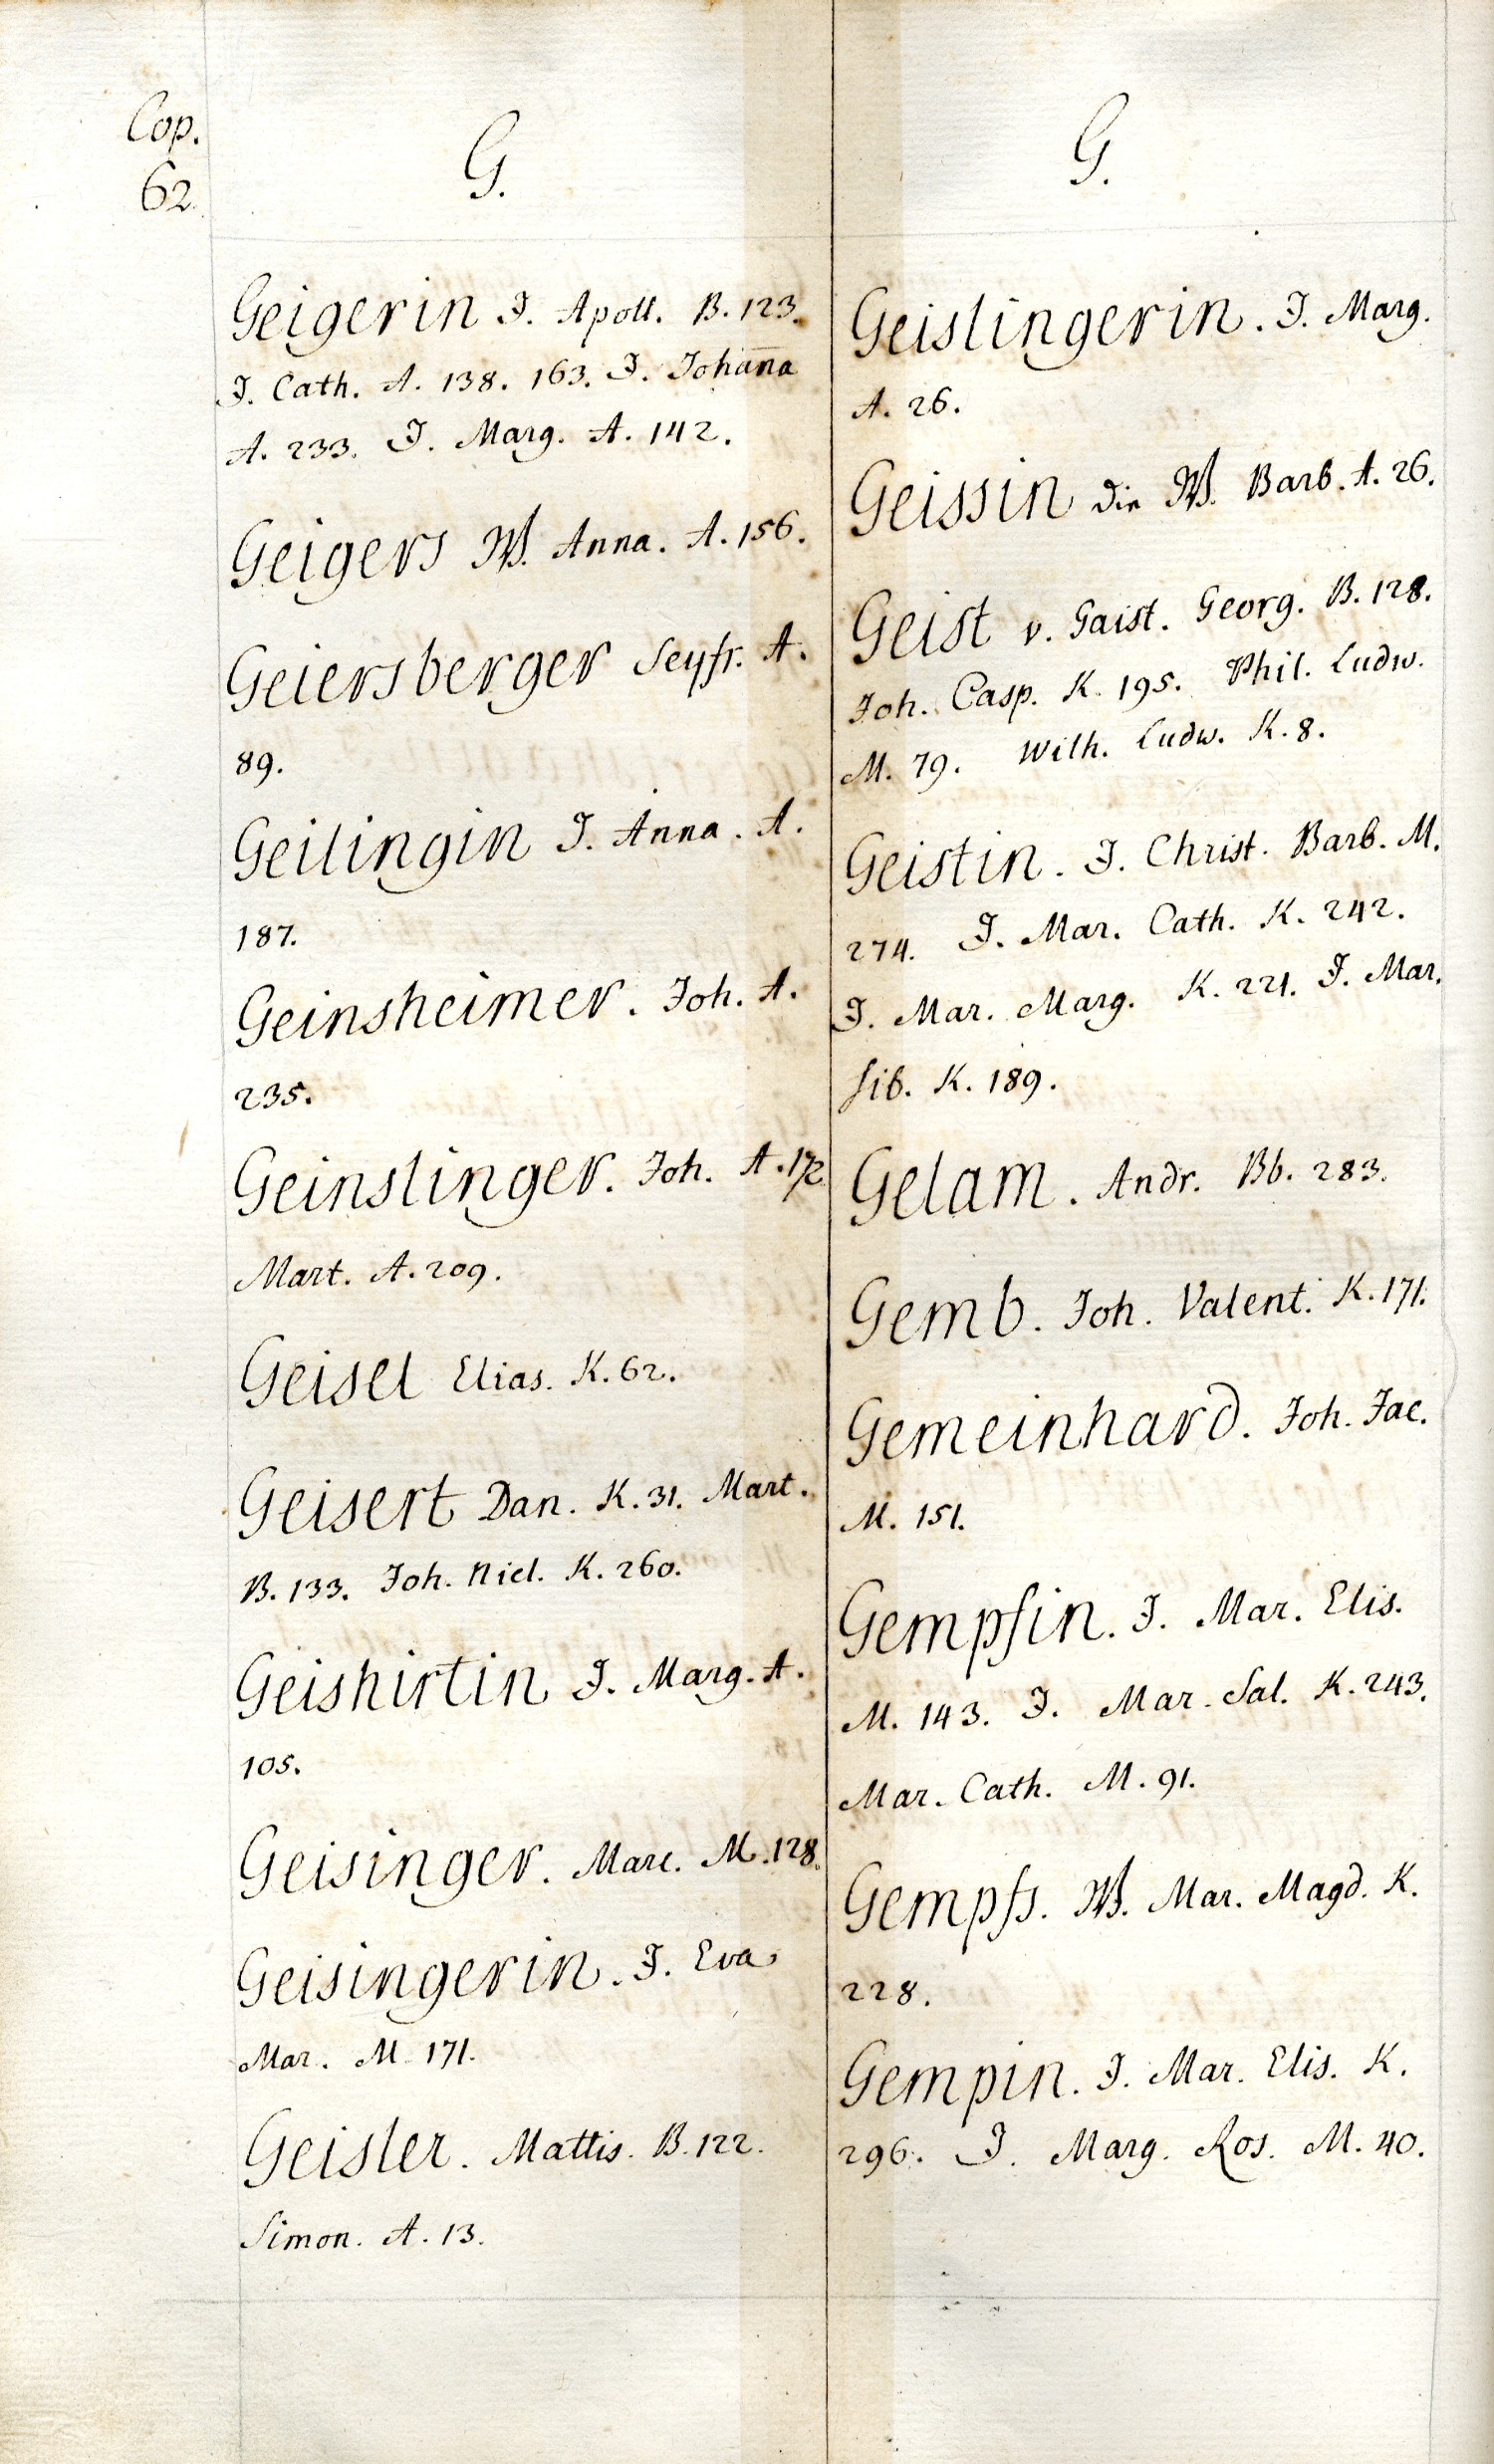 Cop.
62.
G.
Geigerin J. Apoll. B. 123.
J. Cath. A. 138. 163. J. Johan̅a
A. 233. J. Marg. A. 142.
Geigers W. Anna. A. 156.
Geiersberger Seyfr. A.
89.
Geilingin J. Anna. A.
187.
Geinsheimer. Joh. A.
235.
Geinslinger. Joh. A. 172
Mart. A. 209.
Geisel Elias. K. 62.
Geisert Dan. K. 31. Mart.
B. 133. Joh. Nicl. K. 260.
Geishirtin J. Marg. A.
105.
Geisinger. Marc. M. 128.
Geisingerin. J. Eva
Mar. M. 171.
Geisler. Mattis. B. 122.
Simon. A. 13.
G.
Geislingerin. J. Marg.
A. 26.
Geissin die W. Barb. A. 26.
Geist v. Gaist. Georg. B. 128.
Joh. Casp. K. 195. Phil. Ludw.
M. 79. Wilh. Ludw. K. 8.
Geistin. J. Christ. Barb. M.
274. J. Mar. Cath. K. 242.
J. Mar. Marg. K. 221. J. Mar.
Sib. K. 189.
Gelam. Andr. Bb. 283.
Gemb. Joh. Valent. K. 171.
Gemeinhard. Joh. Jac.
M. 151.
Gempfin. J. Mar. Elis.
M. 143. J. Mar. Sal. K. 243.
Mar. Cath. M. 91.
Gempfs. W. Mar. Magd. K.
228.
Gempin. J. Mar. Elis. K.
296. J. Marg. Ros. M. 40.